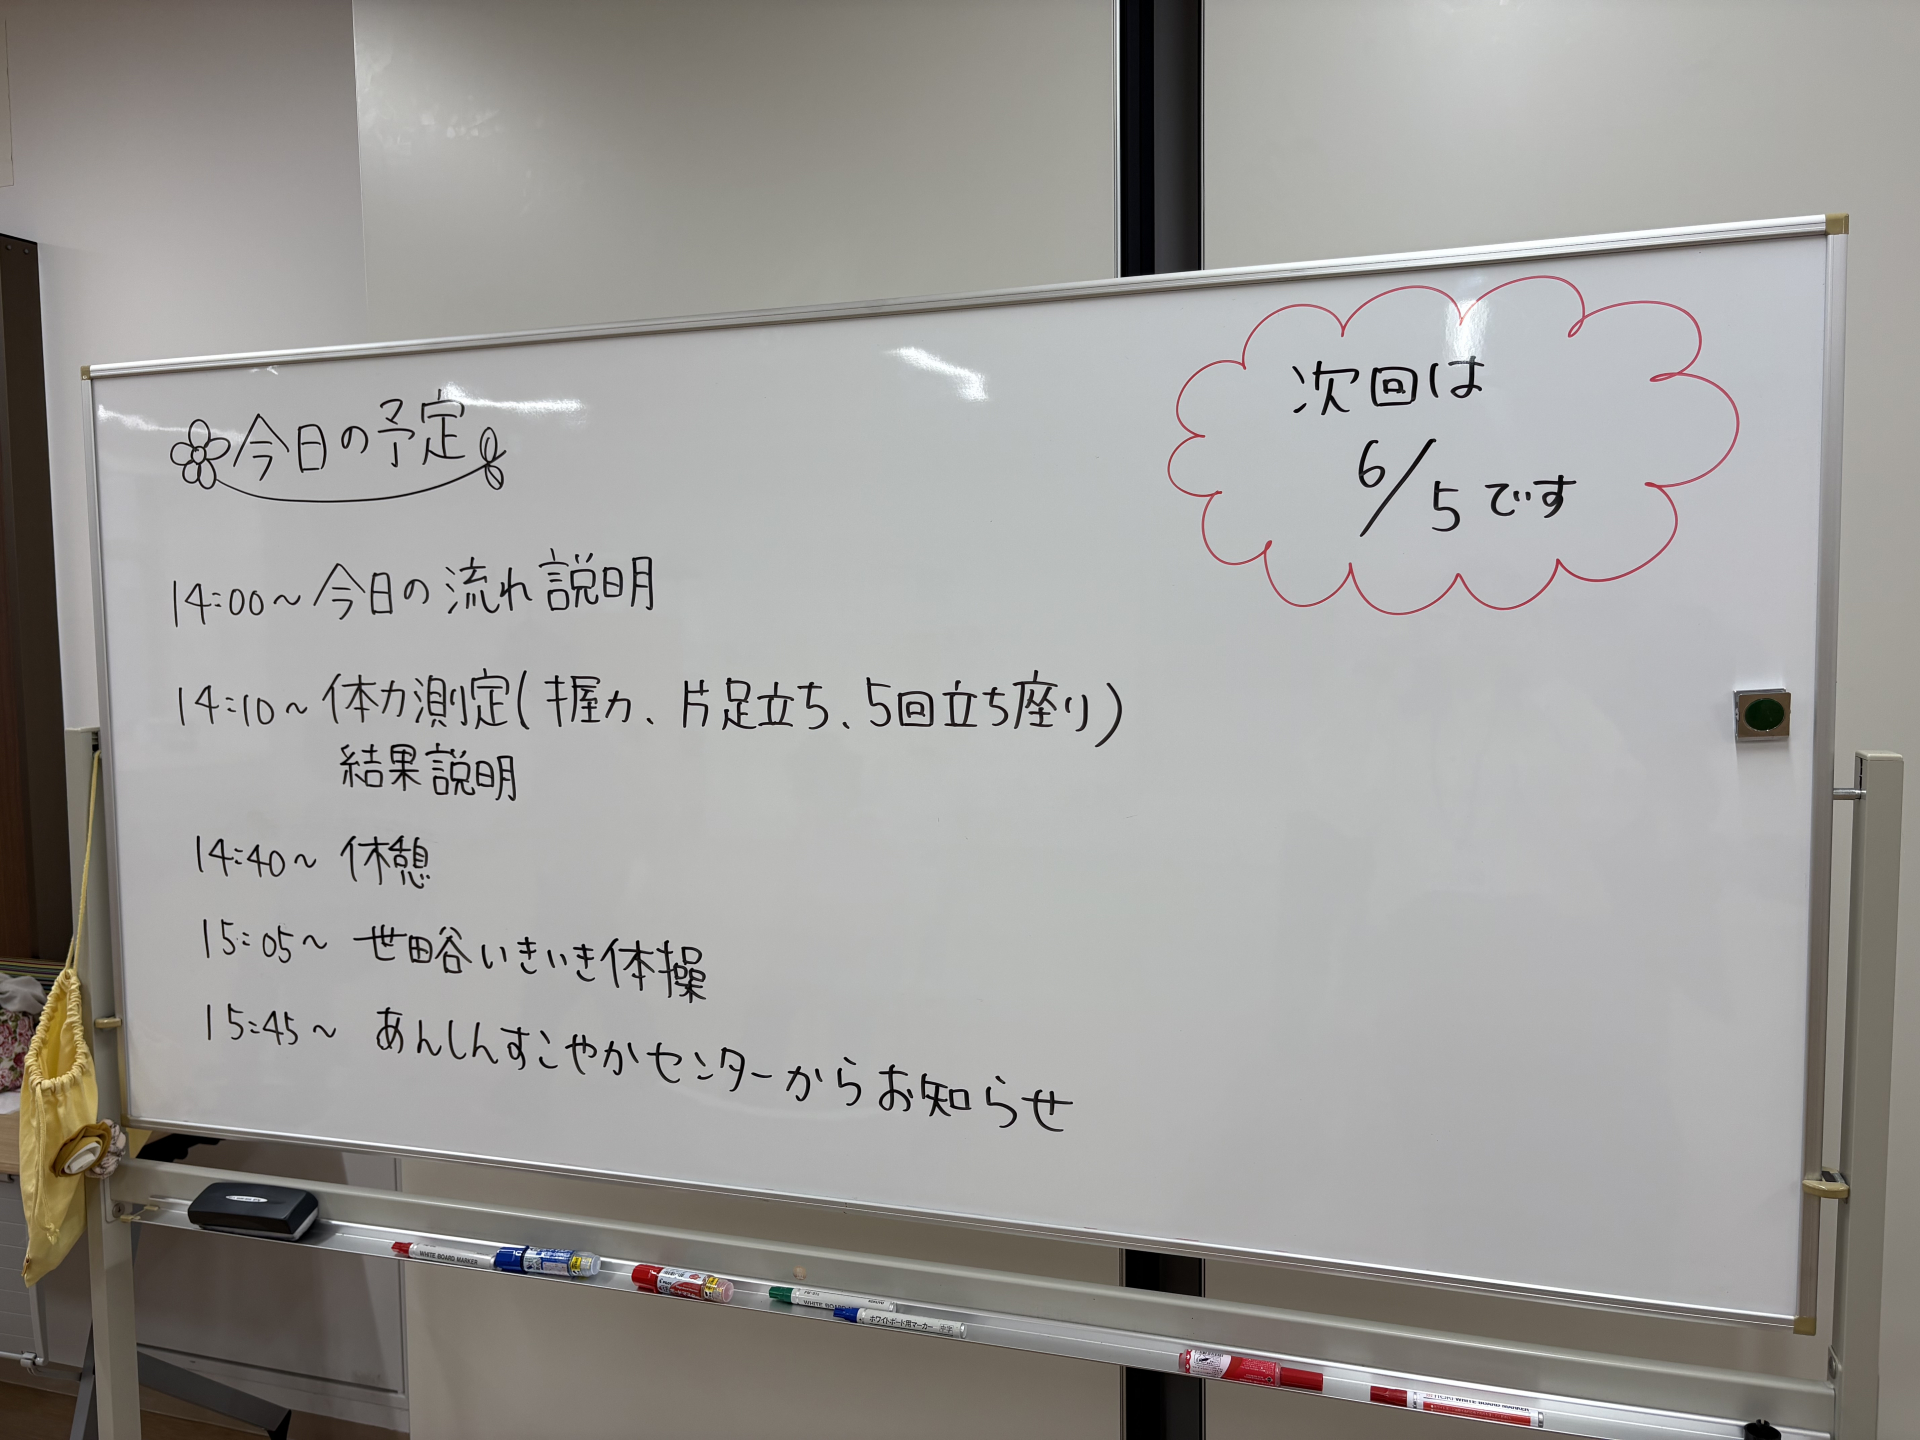 今日の予定
次回は
6/5です
14:00～今日の流れ説明
14:10～体力測定(握力、片足立ち、5回立ち座り)
結果説明
14:40～休憩
15:05～世田谷いきいき体操
15:45～あんしんすこやかセンターからお知らせ
WHITE BOARD MARKER
WHITE BOARD
ホワイトボード用マーカー 中字
WHITE BOARD MARKER